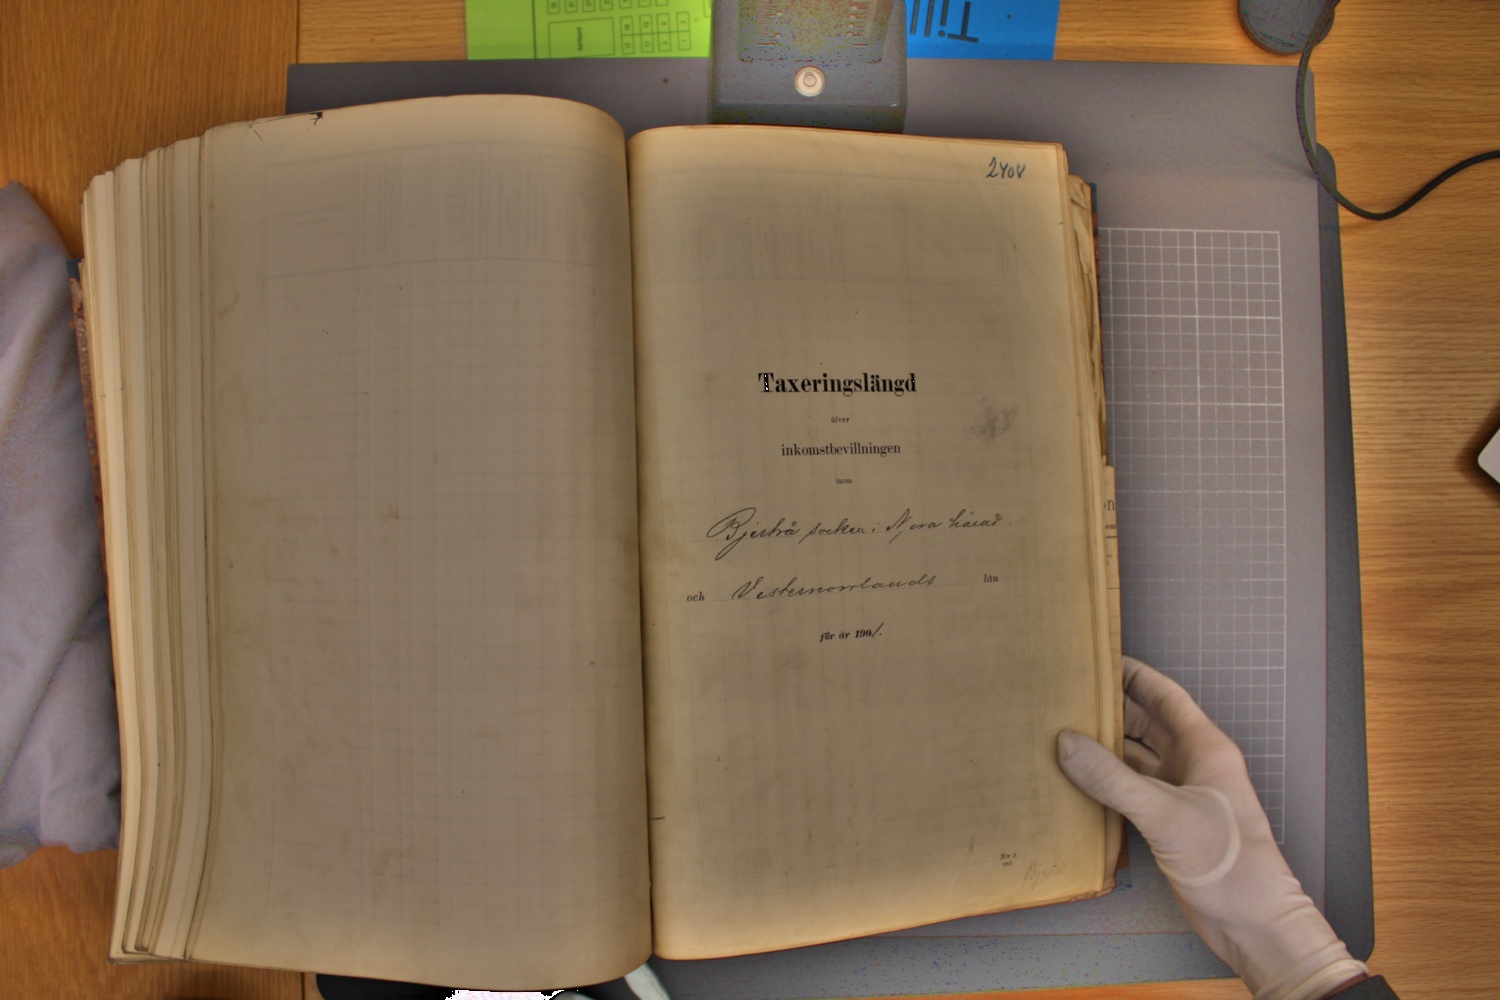 Till
2408
Taxeringslängd
öfver
inkomstbevillningen
inom
Bjertrå socken i Nora härad.
och Vesternorrlands län
för år 1901.
Nr 3.